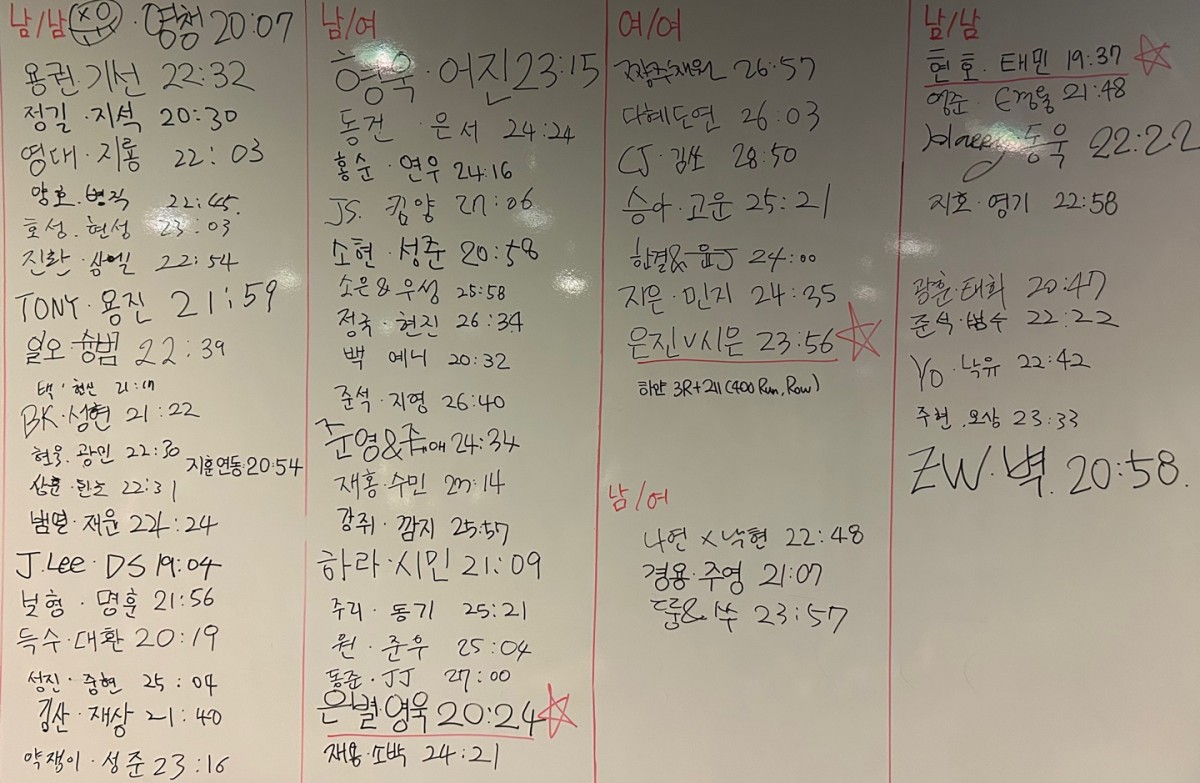 남/남 영청 20:07
용권·기선 22:32
정길·지석 20:30
영대·지룡 22:03
양호·병직 22:45
호성·현성 23:03
진환·삼엘 22:54
TONY·용진 21:59
일오·슝범 22:39
택·현신 21:17
BK·섬현 21:22
현욱·광민 22:30
지훈연동 20:54
22:31
범열·재윤 22:24
J.Lee·DS 19:04
보형·명훈 21:56
득수·대환 20:19
성진·중현 25:04
김산·재상 21:40
약쟁이·성준 23:16
남/여
형욱·어진 23:15
동건 은서 24:24
홍순·연우 24:16
JS. 킴양 27:06
소현·성준 20:58
소은&우성 25:58
정국·현진 26:34
백 예니 20:32
준석·지영 26:40
24:34
재홍·수민 27:14
강쥐·깜지 25:57
하라·시민 21:09
주리·동기 25:21
원·준우 25:04
동준·JJ 27:00
은별·영욱 20:24
재용·소박 24:21
여/여
26:57
다혜도연 26:03
CJ·김쏘 28:50
승아·고운 25:21
한결&윤J 24:00
지은·민지 24:35
은진v시은 23:56
하얀 3R+211(400 Run, Row)
남/여
나연×낙현 22:48
경용·주영 21:07
룸&쑤 23:57
남/남
현호·태민 19:37
영준· 21:48
Harry·동욱 22:22
지호·영기 22:58
광훈·태희 20:47
준석·범수 22:22
YO·낙유 22:42
주현·오상 23:33
ZW·벽. 20:58.